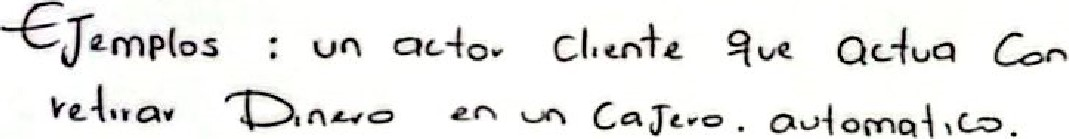 EJemplos : un actor cliente que actua Con
retirar Dinero en un CaJero. automatico.